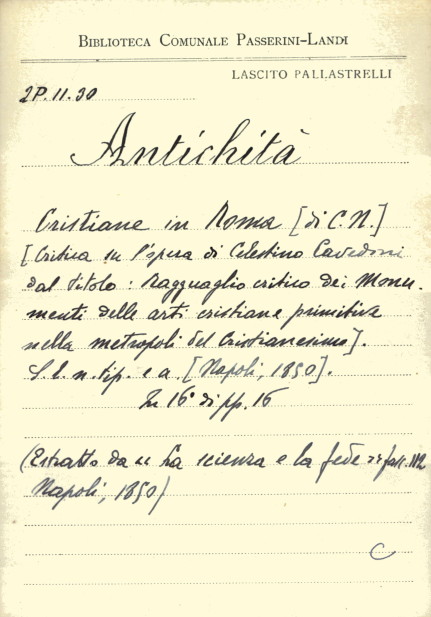 BIBLIOTECA COMUNALE PASSERINI-LANDI
LASCITO PALLASTRELLI
2P.11.30
Antichità
Cristiane in Roma [di C.N.]
[Critica su l'opera di Celestino Cavedoni
dal titolo: Ragguaglio critico dei Monu-
menti delle arti cristiane primitive
nella metropoli del Cristianesimo].
S.l.n.tip. e a. [Napoli, 1850].
In 16° di pp. 16
(Estratto da "La scienza e la fede" fasc. 112
Napoli, 1850)
C